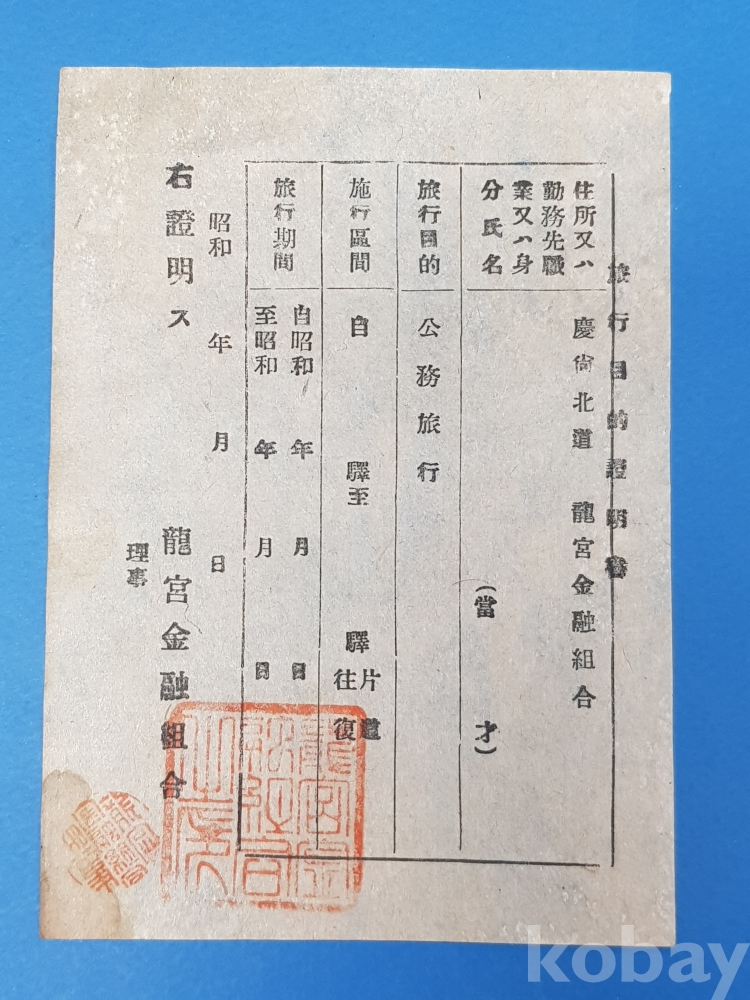 旅行目的證明書
住所又ハ
勤務先職
業又ハ身
分氏名
慶尙北道 龍宮金融組合
(當 才)
旅行目的
公務旅行
施行區間
自 驛至 驛
片道
往復
旅行期間
自昭和 年 月 日
至昭和 年 月 日
右證明ス
昭和 年 月 日
龍宮金融組合
理事
kobay